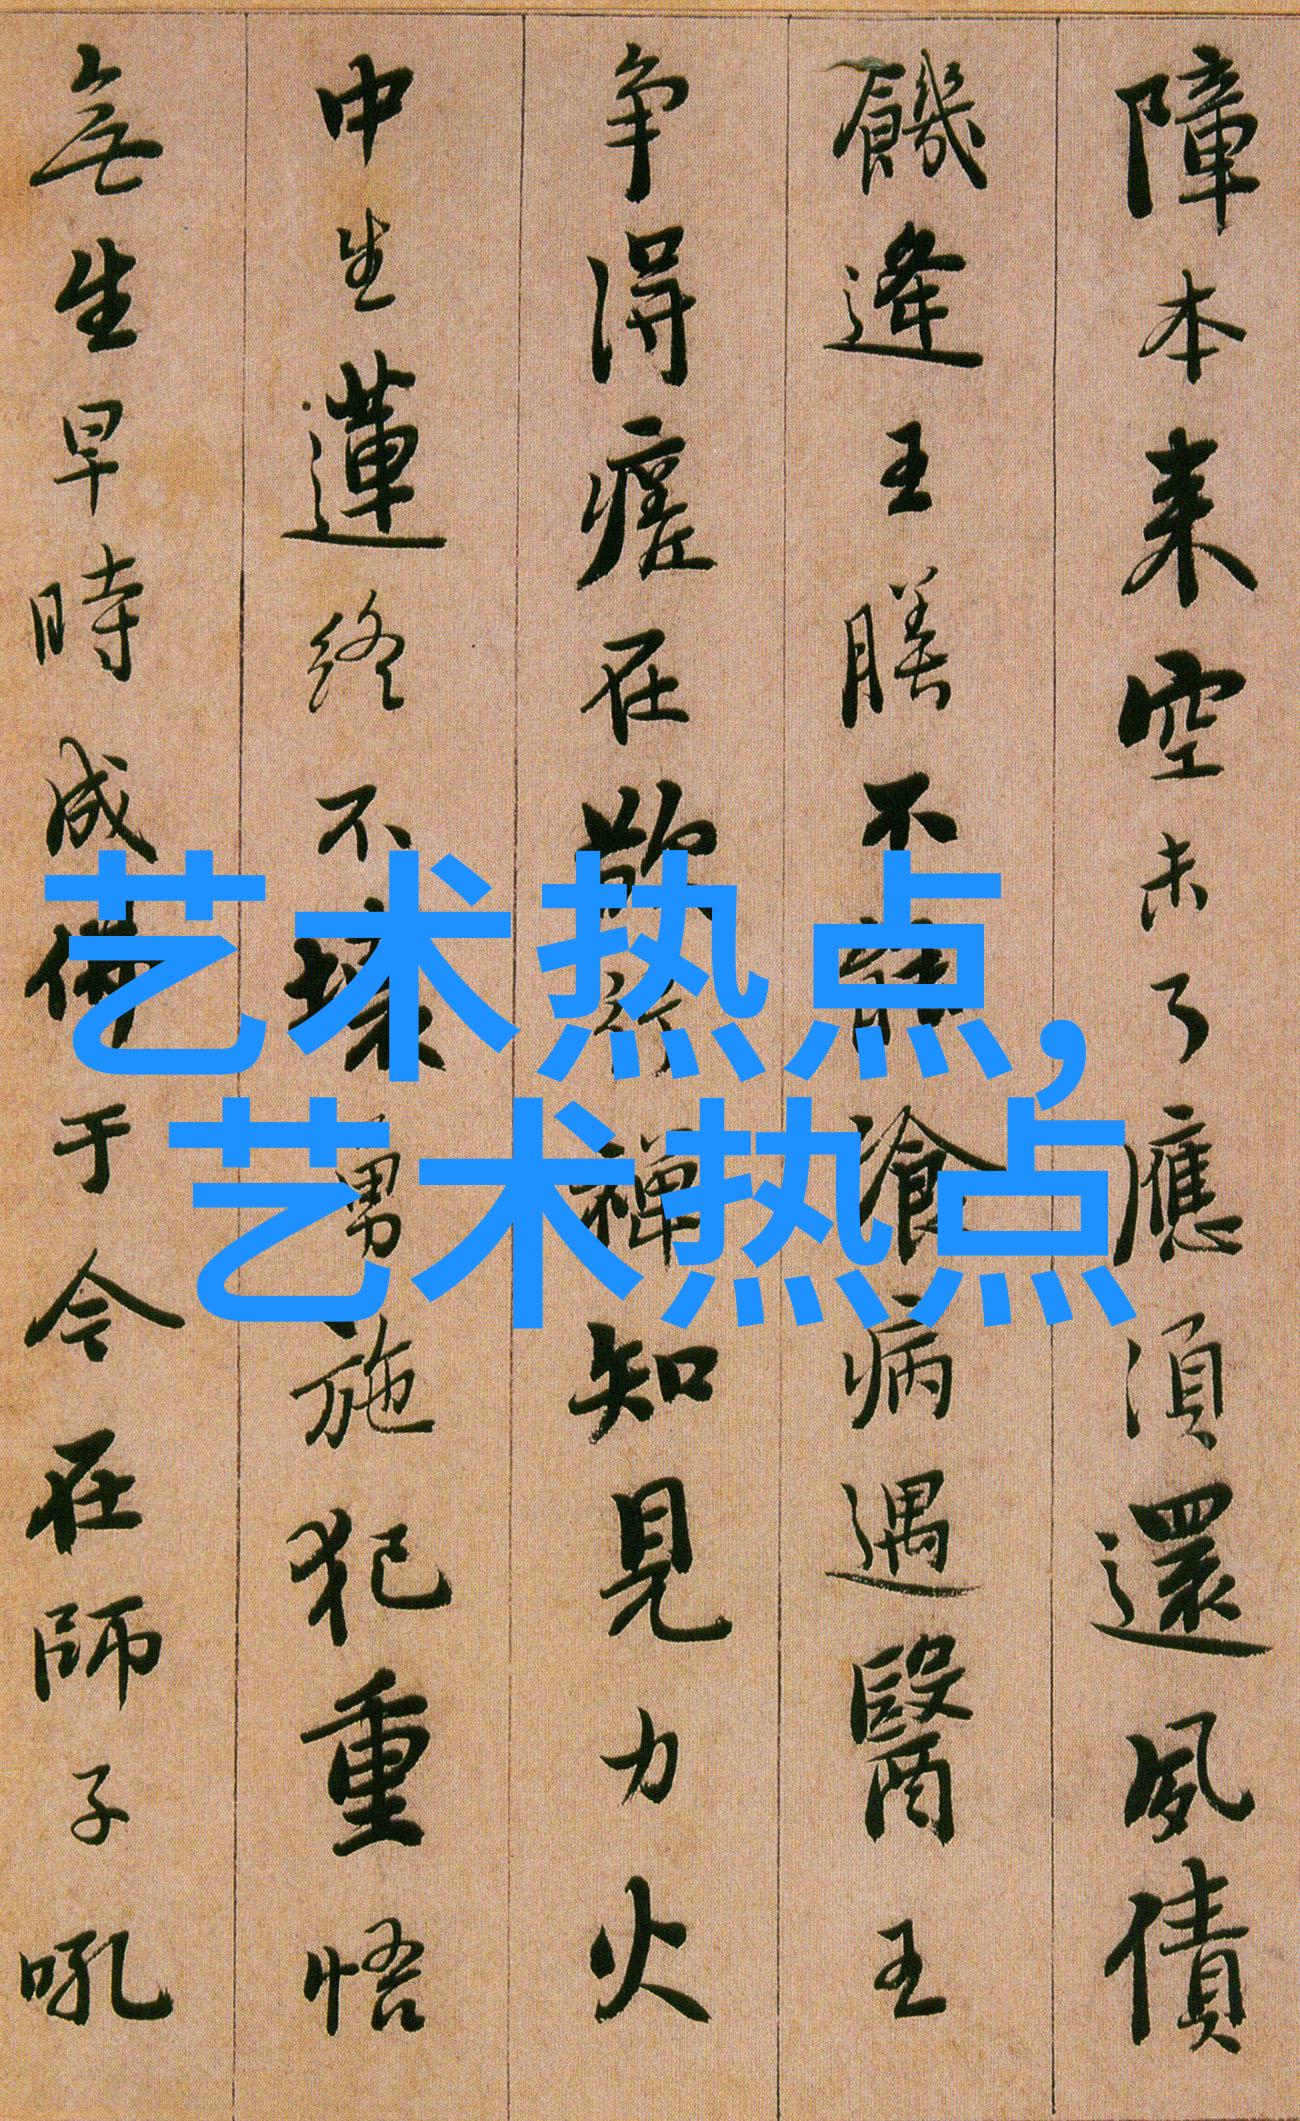 障本来空未了應須還夙債
饑逢王膳不能湌病遇醫王
争得瘥在欲行禪知見力火
中生蓮終不壞勇施犯重悟
無生早時成佛于今在師子吼
艺术热点,
艺术热点